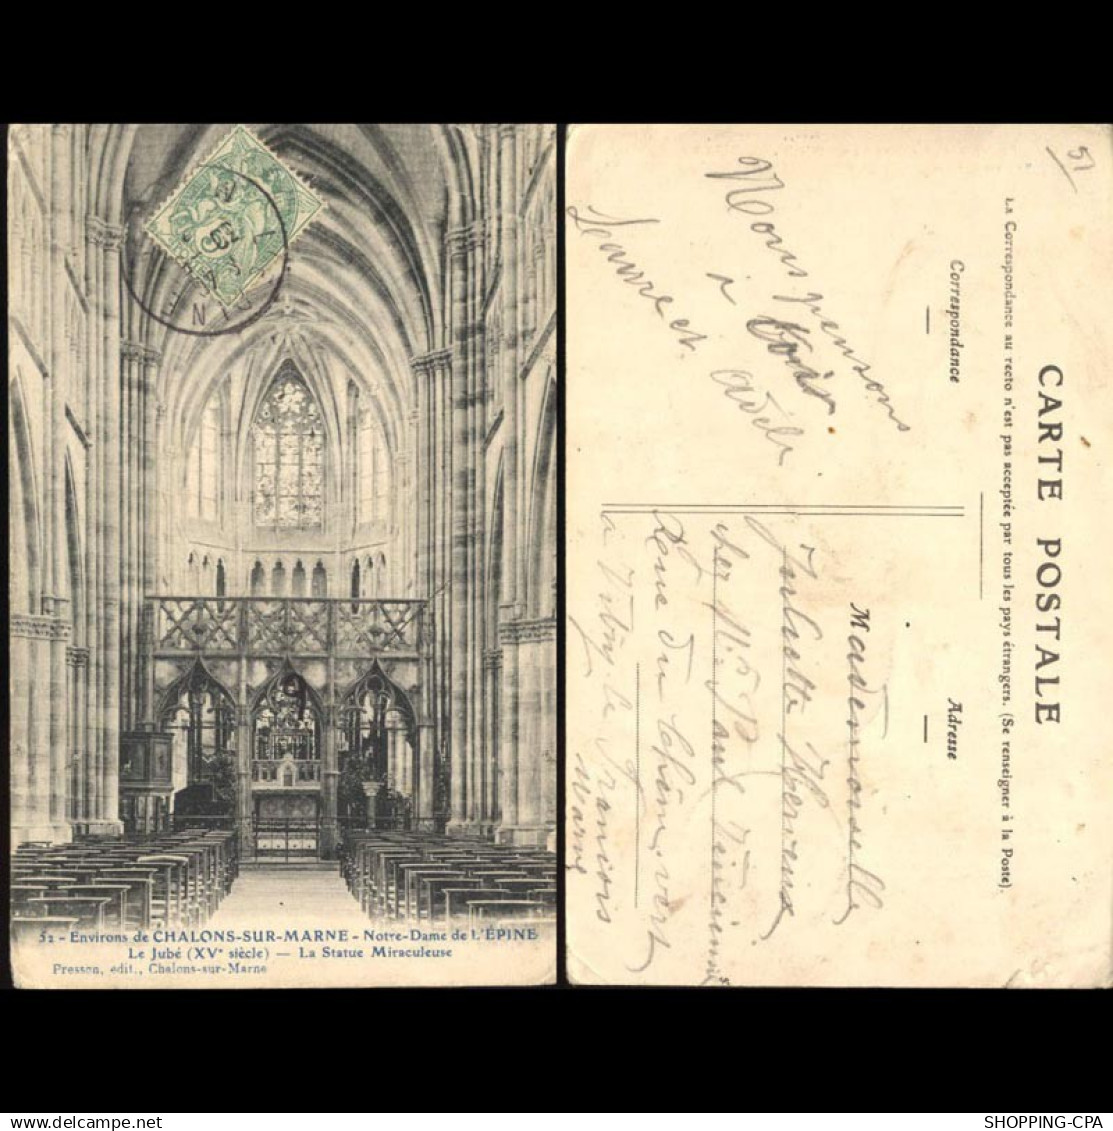 52 - Environs de CHALONS-SUR-MARNE - Notre-Dame de L'ÉPINE
Le Jubé (XVe siècle) — La Statue Miraculeuse
Presson, édit., Chalons-sur-Marne
51
CARTE POSTALE
La Correspondance au recto n'est pas acceptée par tous les pays étrangers. (Se renseigner à la Poste).
Correspondance
Adresse
Nous pensons
à
Mademoiselle
Juliette
chez Mr Paul
Rue du Chêne vert
à Vitry le François
Marne
SHOPPING-CPA